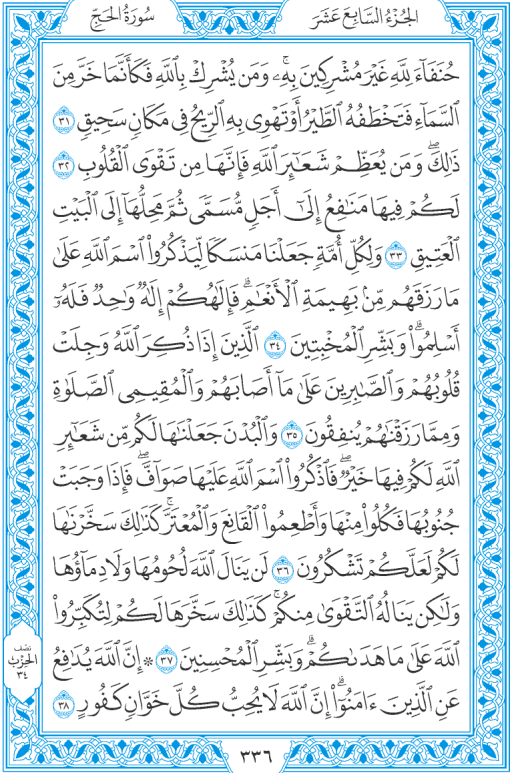 الجُزْءُ السَّابِعَ عَشَرَ
سُورَةُ الحَجِّ
حُنَفَآءَ لِلَّهِ غَيْرَ مُشْرِكِينَ بِهِۦۚ وَمَن يُشْرِكْ بِٱللَّهِ فَكَأَنَّمَا خَرَّ مِنَ
ٱلسَّمَآءِ فَتَخْطَفُهُ ٱلطَّيْرُ أَوْ تَهْوِى بِهِ ٱلرِّيحُ فِى مَكَانٍ سَحِيقٍ ٣١
ذَٰلِكَۖ وَمَن يُعَظِّمْ شَعَٰٓئِرَ ٱللَّهِ فَإِنَّهَا مِن تَقْوَى ٱلْقُلُوبِ ٣٢
لَكُمْ فِيهَا مَنَٰفِعُ إِلَىٰٓ أَجَلٍ مُّسَمًّى ثُمَّ مَحِلُّهَآ إِلَى ٱلْبَيْتِ
ٱلْعَتِيقِ ٣٣ وَلِكُلِّ أُمَّةٍ جَعَلْنَا مَنسَكًا لِّيَذْكُرُوا۟ ٱسْمَ ٱللَّهِ عَلَىٰ
مَا رَزَقَهُم مِّنۢ بَهِيمَةِ ٱلْأَنْعَٰمِۗ فَإِلَٰهُكُمْ إِلَٰهٌ وَٰحِدٌ فَلَهُۥٓ
أَسْلِمُوا۟ۗ وَبَشِّرِ ٱلْمُخْبِتِينَ ٣٤ ٱلَّذِينَ إِذَا ذُكِرَ ٱللَّهُ وَجِلَتْ
قُلُوبُهُمْ وَٱلصَّٰبِرِينَ عَلَىٰ مَآ أَصَابَهُمْ وَٱلْمُقِيمِى ٱلصَّلَوٰةِ
وَمِمَّا رَزَقْنَٰهُمْ يُنفِقُونَ ٣٥ وَٱلْبُدْنَ جَعَلْنَٰهَا لَكُم مِّن شَعَٰٓئِرِ
ٱللَّهِ لَكُمْ فِيهَا خَيْرٌۖ فَٱذْكُرُوا۟ ٱسْمَ ٱللَّهِ عَلَيْهَا صَوَآفَّۖ فَإِذَا وَجَبَتْ
جُنُوبُهَا فَكُلُوا۟ مِنْهَا وَأَطْعِمُوا۟ ٱلْقَانِعَ وَٱلْمُعْتَرَّۚ كَذَٰلِكَ سَخَّرْنَٰهَا
لَكُمْ لَعَلَّكُمْ تَشْكُرُونَ ٣٦ لَن يَنَالَ ٱللَّهَ لُحُومُهَا وَلَا دِمَآؤُهَا
وَلَٰكِن يَنَالُهُ ٱلتَّقْوَىٰ مِنكُمْۚ كَذَٰلِكَ سَخَّرَهَا لَكُمْ لِتُكَبِّرُوا۟
ٱللَّهَ عَلَىٰ مَا هَدَىٰكُمْۗ وَبَشِّرِ ٱلْمُحْسِنِينَ ٣٧ ۞ إِنَّ ٱللَّهَ يُدَٰفِعُ
عَنِ ٱلَّذِينَ ءَامَنُوٓا۟ۗ إِنَّ ٱللَّهَ لَا يُحِبُّ كُلَّ خَوَّانٍ كَفُورٍ ٣٨
نصف
الحِزْب
٣٤
٣٣٦